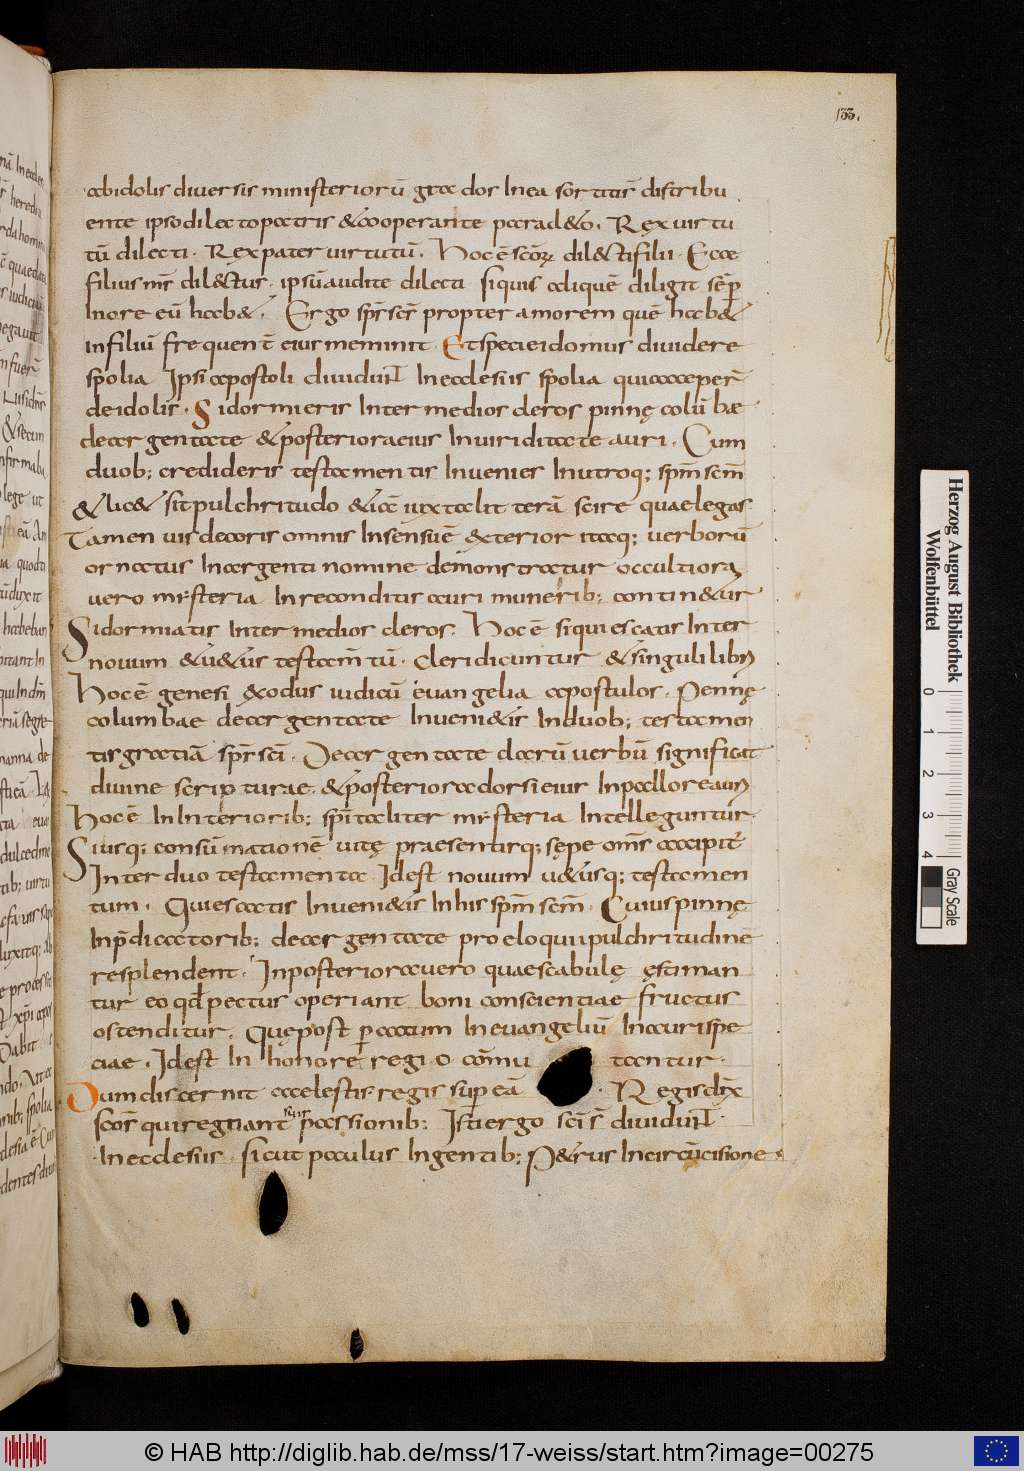 133.
abidolis diuersis ministeriorū grados Inea sortitis distribu
ente ipsodilectopatris &cooperante parad&o. Rex uirtu
tū dilecti. Rexpater uirtutū. Hocēscōꝝ dil&tifilii. Ecce
filiusmr̄ dil&tus. ipsūaudite dilecti siquis aliquē diligit sēꝑ
Inore eū hab&. Ergo sp̄rsēr propter amorem quē hab&
infiliū frequent̄ eius meminit. Et speciei domus diuidere
spolia Ipsi apostoli diuidūt Inecclesiis spolia quiacceper̄
deidolis. Sidormieris Inter medios cleros pinnę colūbae
deargentatae &posterioraeius Inuiriditate auri. Cum
duob; credideris testamentis Inuenies Inutroq; sp̄m scm̄
&lic& sitpulchritudo &iā iuxtalit terā scire quaelegas.
Tamen uis decoris omnis Insensuē exterior itaq; uerborū
ornatus Inargenti nomine demonstratur occultiora
uero mysteria Inreconditis auri munerib; contin&ur
Sidormiatis Inter medios cleros. Hocē siquiescatis Inter
nouum &u&us testam̄tū. Clericuntur &singuli libri
Hocē genesi exodus iudicū euangelia apostulos. Pennę
columbae deargentatae Inueni&is Induob; testamen
tisgratiā sp̄r sci. Deargentatae doctū uerbū significat
diuine scripturae. &posterioradorsi eius Inpalloreauri
Hocē InInteriorib; spītaliter mysteria Intelleguntur.
Siusq; consūmationē uitę praesentisq; sępe om̄s accipit
Interduo testamenta Idest nouum u&usq; testamen
tum. Quiescatis Inueni&is Inhis sp̄m scm̄. Cuiuspinnę
Inp̄dicatorib; deargentatae proeloquiipulchritudinē
resplendent. Inposteriorauero quaescabulę ęstiman
tur eo qđ pectus operiant boni conscientiae fructus
ostenditur. Quępost ꝑactum Ineuangeliū Inaurispe
ciae. Idest In honore regio cōmu tantur.
Dum discernit caelestis regis suꝑ eā . Regisdix̄
scōs quiregnant suis passionib; Isti ergo scīs diuidūt
Inecclesiis sicut paulus Ingentib; P&rus Incircūcisione
Herzog August Bibliothek
Wolfenbüttel
0 1 2 3 4
Gray Scale
© HAB http://diglib.hab.de/mss/17-weiss/start.htm?image=00275